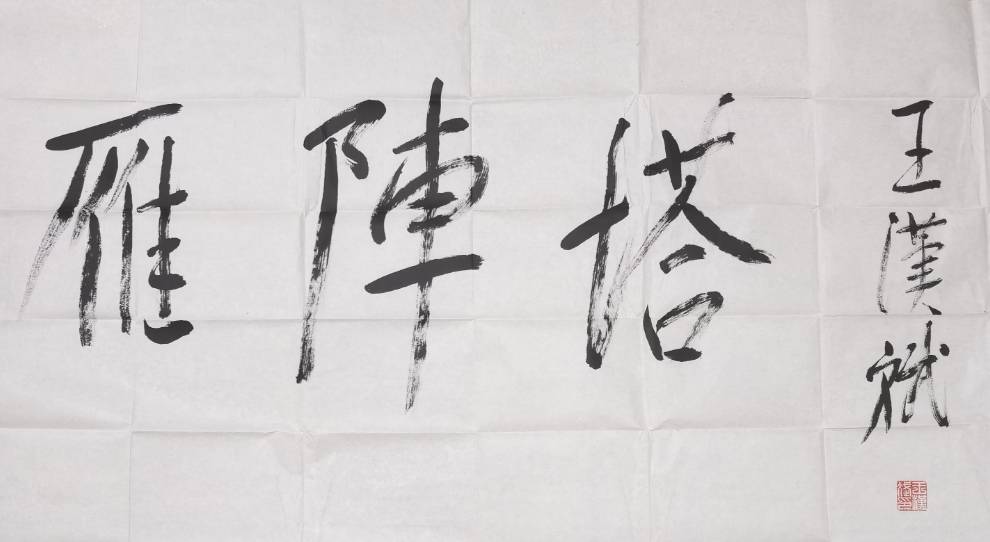 雁陣塔
王漢斌